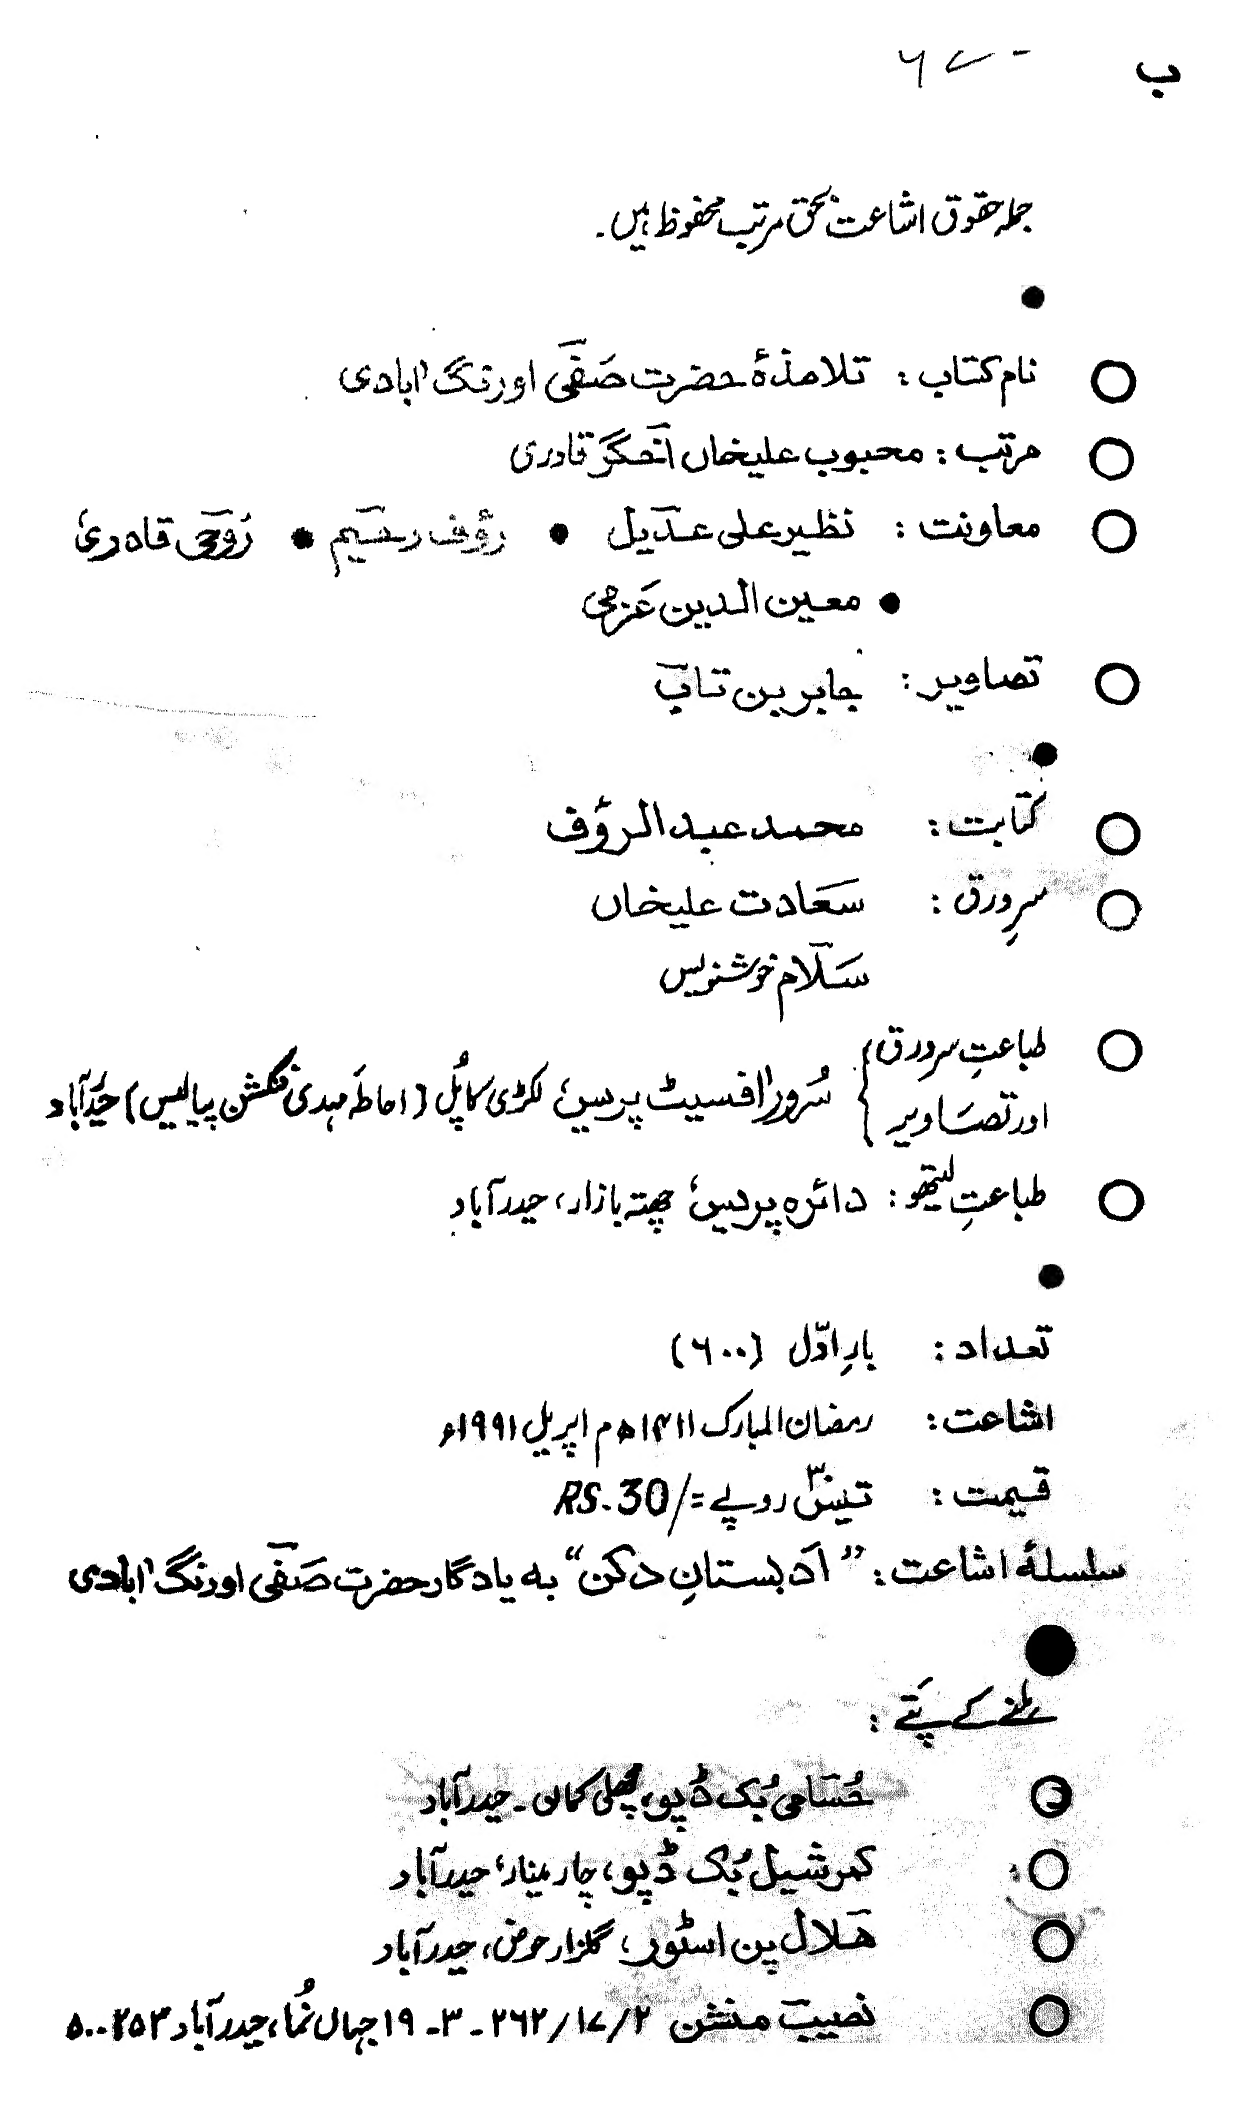 ب
جملہ حقوق اشاعت بحق مرتب محفوظ ہیں۔
نام کتاب : تلامذۂ حضرت صفیؔ اورنگ آبادی
مرتب : محبوب علیخاں اخگرؔ قادری
معاونت : نظیر علی عدیلؔ ● رؤف رحیمؔ ● روحیؔ قادری
● معین الدین عزمیؔ
تصاویر : جابر بن تابؔ
کتابت : محمد عبدالرؤف
سرِورق : سعادت علیخاں
سلامؔ خوشنویس
طباعتِ سرورق
اور تصاویر } سُرور آفسیٹ پریس، لکڑی کا پُل (احاطہ مہدی فنکشن پیالیس) حیدرآباد
طباعتِ لیتھو : دائرہ پریس، چھتہ بازار، حیدرآباد
تعداد : بارِ اوّل (۶۰۰)
اشاعت : رمضان المبارک ۱۴۱۱ھ م اپریل ۱۹۹۱ء
قیمت : تیس۳۰ روپے =/RS.30
سلسلۂ اشاعت : ”ادبستانِ دکن“ بہ یادگار حضرت صفیؔ اورنگ آبادی
ملنے کے پتے :
حُسامی بُک ڈپو، مچھلی کمان۔ حیدرآباد
کمرشیل بُک ڈپو، چار مینار، حیدرآباد
ھلال پن اسٹور، گلزار حوض، حیدرآباد
نصیب منشن ۲/۱۷/۲۶۲ - ۳ - ۱۹ جہاں نُما، حیدرآباد ۵۰۰۲۵۳